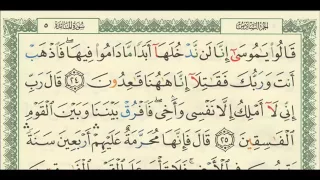 سُورَةُ المَائِدَةِ ٥
الجُزْءُ السَّادِسُ
قَالُوا۟ يَٰمُوسَىٰٓ إِنَّا لَن نَّدْخُلَهَآ أَبَدًا مَّا دَامُوا۟ فِيهَا فَٱذْهَبْ
أَنتَ وَرَبُّكَ فَقَٰتِلَآ إِنَّا هَٰهُنَا قَٰعِدُونَ ٢٤ قَالَ رَبِّ
إِنِّى لَآ أَمْلِكُ إِلَّا نَفْسِى وَأَخِى فَٱفْرُقْ بَيْنَنَا وَبَيْنَ ٱلْقَوْمِ
ٱلْفَٰسِقِينَ ٢٥ قَالَ فَإِنَّهَا مُحَرَّمَةٌ عَلَيْهِمْ أَرْبَعِينَ سَنَةً